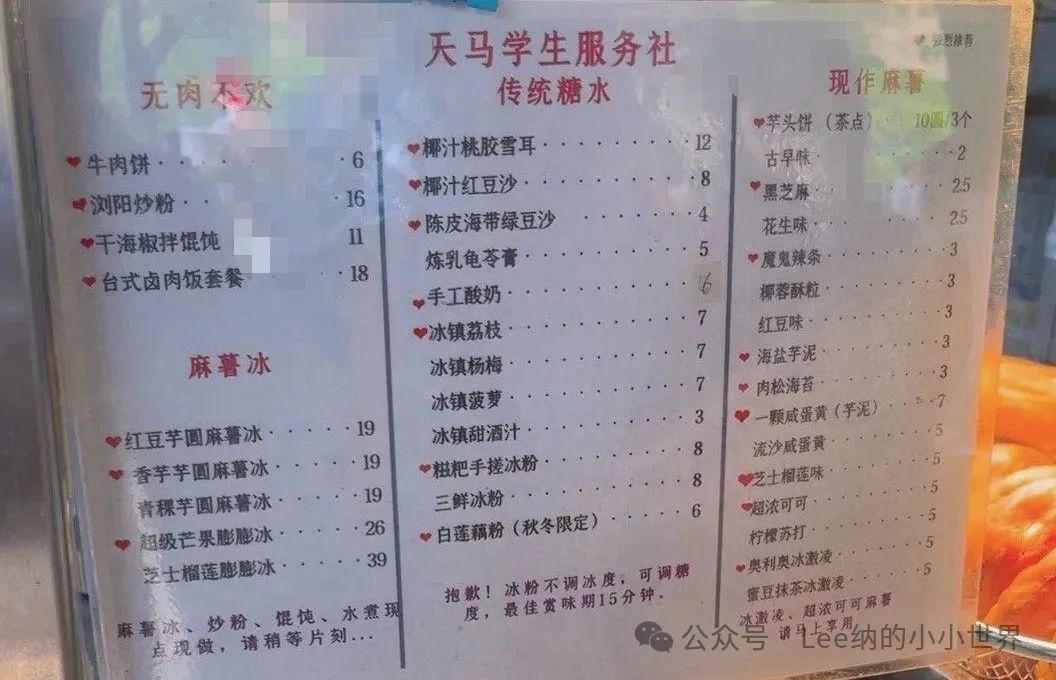 天马学生服务社
❤ 强烈推荐
无肉不欢
❤牛肉饼 6
❤浏阳炒粉 16
❤干海椒拌馄饨 11
❤台式卤肉饭套餐 18
麻薯冰
❤红豆芋圆麻薯冰 19
❤香芋芋圆麻薯冰 19
青稞芋圆麻薯冰 19
❤超级芒果膨膨冰 26
芝士榴莲膨膨冰 39
麻薯冰、炒粉、馄饨、水煮现
点现做，请稍等片刻...
传统糖水
❤椰汁桃胶雪耳 12
❤椰汁红豆沙 8
❤陈皮海带绿豆沙 4
炼乳龟苓膏 5
❤手工酸奶 6
❤冰镇荔枝 7
冰镇杨梅 7
冰镇菠萝 7
冰镇甜酒汁 3
❤糍粑手搓冰粉 8
三鲜冰粉 8
❤白莲藕粉（秋冬限定） 6
抱歉！冰粉不调冰度，可调糖
度，最佳赏味期15分钟.
现作麻薯
❤芋头饼（茶点） 10四/3个
古早味 2
❤黑芝麻 2.5
花生味 2.5
❤魔鬼辣条 3
椰蓉酥粒 3
红豆味 3
❤海盐芋泥 3
❤肉松海苔 3
❤一颗咸蛋黄（芋泥） 7
流沙咸蛋黄 5
❤芝士榴莲味 5
❤超浓可可 5
柠檬苏打 5
❤奥利奥冰激凌 5
蜜豆抹茶冰激凌 5
冰激凌、超浓可可麻薯
请马上享用
公众号 Lee纳的小小世界